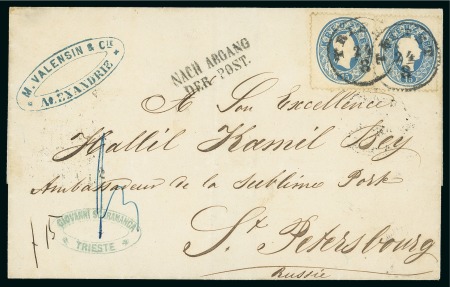 M. VALENSIN & CIE
ALEXANDRIE
NACH ABGANG
DER POST.
A Son Excellence
Hallil Kamil Bey
Ambassadeur de la Sublime Porte
GIOVANNI
TRIESTE
15
St Petersbourg
Russie